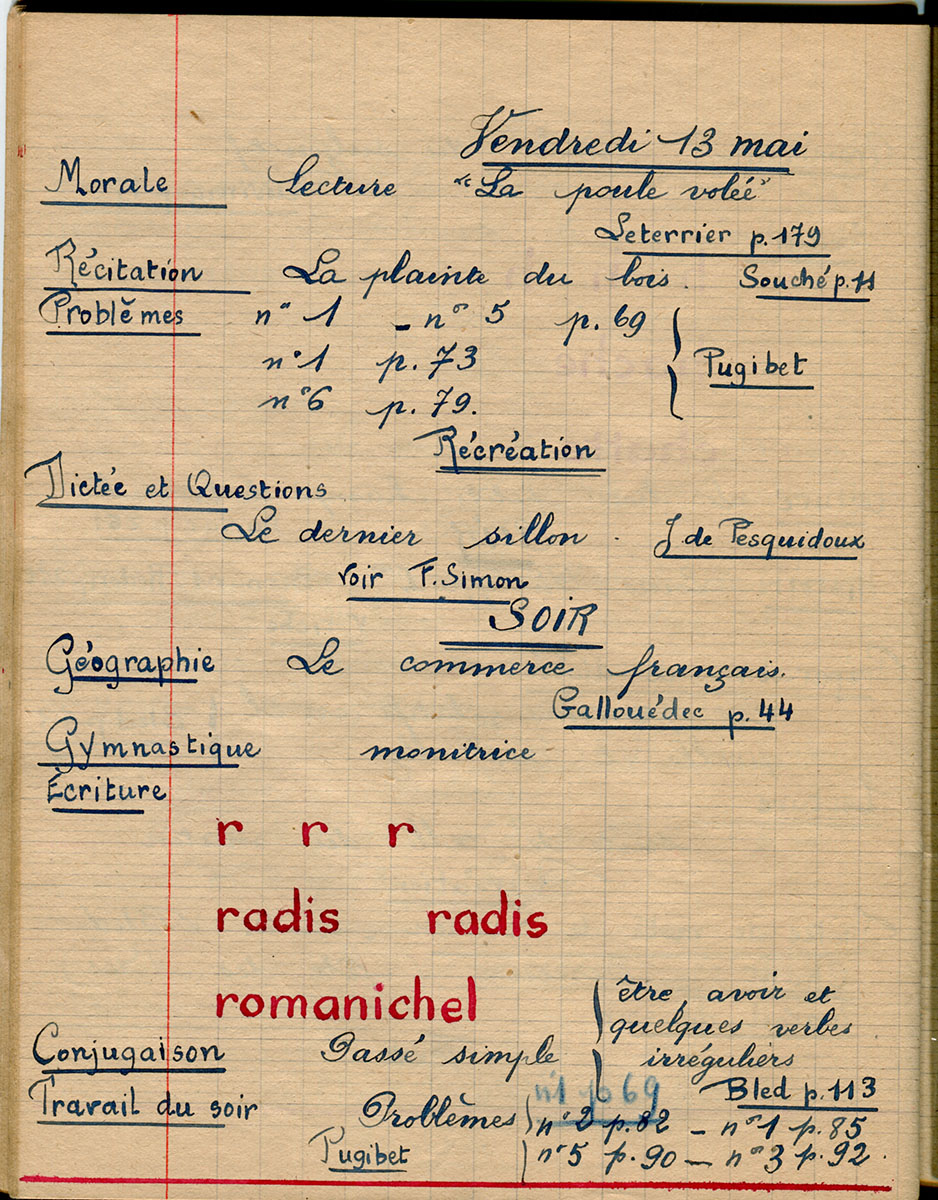 Vendredi 13 mai
Morale Lecture "La poule volée"
Leterrier p.179
Récitation La plainte du bois. Souché p.11
Problèmes n° 1 - n° 5 p. 69
n° 1 p. 73 Pugibet
n° 6 p. 79.
Récréation
Dictée et Questions
Le dernier sillon. J de Pesquidoux
voir F. Simon
SOIR
Géographie Le commerce français.
Gallouédec p. 44
Gymnastique monitrice
Écriture
r r r
radis radis
romanichel
être, avoir et
quelques verbes
Conjugaison Passé simple irréguliers
n°1 p 69 Bled p. 113
Travail du soir Problèmes n° 2 p. 82 - n° 1 p. 85
Pugibet n° 5 p. 90 - n° 3 p. 92.